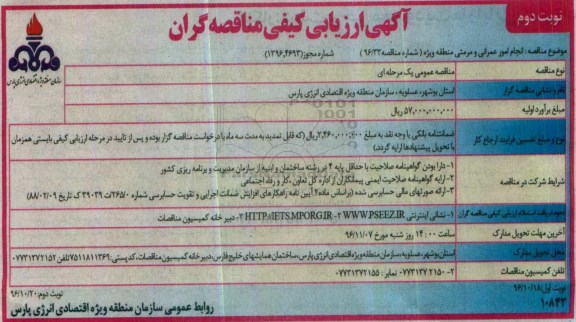 نوبت دوم
آگهی ارزیابی کیفی مناقصه گران
سازمان منطقه ویژه اقتصادی انرژی پارس
موضوع مناقصه : انجام امور عمرانی و مرمتی منطقه ویژه ( شماره مناقصه ۹۶/۳۲ ) شماره مجوز(۱۳۹۶،۴۶۹۳)
نوع مناقصه
مناقصه عمومی یک مرحله ای
نام و نشانی مناقصه گزار
استان بوشهر، عسلویه ، سازمان منطقه ویژه اقتصادی انرژی پارس
مبلغ برآورد اولیه
۵۷,۰۰۰,۰۰۰,۰۰۰ ریال
نوع و مبلغ تضمین فرایند ارجاع کار
ضمانتنامه بانکی یا وجه نقد به مبلغ ۲,۴۶۰,۰۰۰,۰۰۰ریال (که قابل تمدید به مدت سه ماه با درخواست مناقصه گزار بوده و پس از تایید در مرحله ارزیابی کیفی بایستی همزمان
با تحویل پیشنهادها ارایه گردد)
شرایط شرکت در مناقصه
۱- دارا بودن گواهینامه صلاحیت با حداقل پایه ۴ در رشته ساختمان و ابنیه از سازمان مدیریت و برنامه ریزی کشور
۲- ارایه گواهینامه صلاحیت ایمنی پیمانکاران از اداره کل تعاون ،کار و رفاه اجتماعی
۳-ارائه صورتهای مالی حسابرسی شده (براساس ماده۴ آیین نامه راهکار های افزایش ضمانت اجرایی و تقویت حسابرسی شماره ۲۶۵/ت ۳۹۰۳۹ ک تاریخ ۸۸/۰۲/۰۹)
نحوه دریافت استعلام ارزیابی کیفی مناقصه گران
۱- نشانی اینترنتی HTTP://IETS.MPORG.IR -۲ WWW.PSEEZ.IR ۳- دبیر خانه کمیسیون مناقصات
آخرین مهلت تحویل مدارک
ساعت ۱۴:۰۰ روز شنبه مورخ ۹۶/۱۱/۰۷
محل تحویل مدارک
استان بوشهر، عسلویه، سازمان منطقه ویژه اقتصادی انرژی پارس، ساختمان همایشهای خلیج فارس، دبیر خانه کمیسیون مناقصات، کدپستی: ۷۵۱۱۸۱۱۳۶۹تلفن ۰۷۷۳۱۳۷۲۱۵۲
تلفن کمیسیون مناقصات
۰۷۷۳۱۳۷۲۱۵۰-۲ نمابر : ۰۷۷۳۱۳۷۲۱۵۵
نوبت اول:۹۶/۱۰/۱۸
نوبت دوم:۹۶/۱۰/۲۰
۱۰۸۴۳
روابط عمومی سازمان منطقه ویژه اقتصادی انرژی پارس